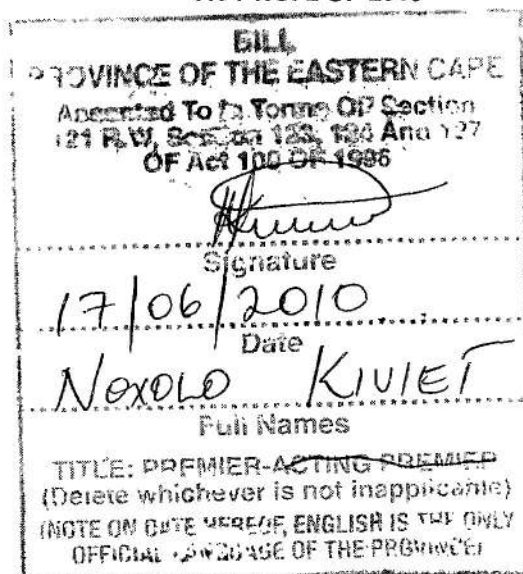 BILL
PROVINCE OF THE EASTERN CAPE
Assented To In Terms OF Section
121 R.W. Section 123, 124 And 127
OF Act 108 OF 1996
Signature
17/06/2010
Date
NOXOLO KIVIET
Full Names
TITLE: PREMIER-ACTING PREMIER
(Delete whichever is not inapplicable)
(NOTE ON DATE HEREOF, ENGLISH IS THE ONLY
OFFICIAL LANGUAGE OF THE PROVINCE)